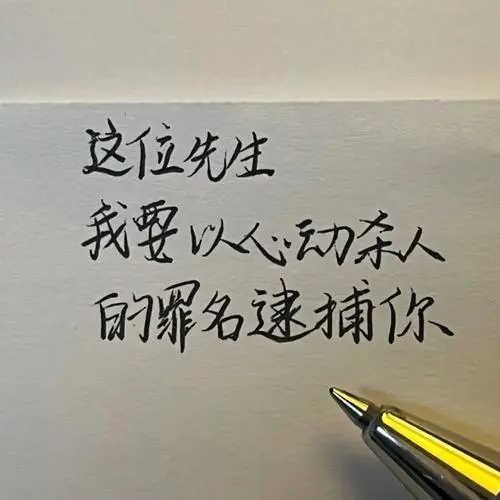 这位先生
我要以心动杀人
的罪名逮捕你